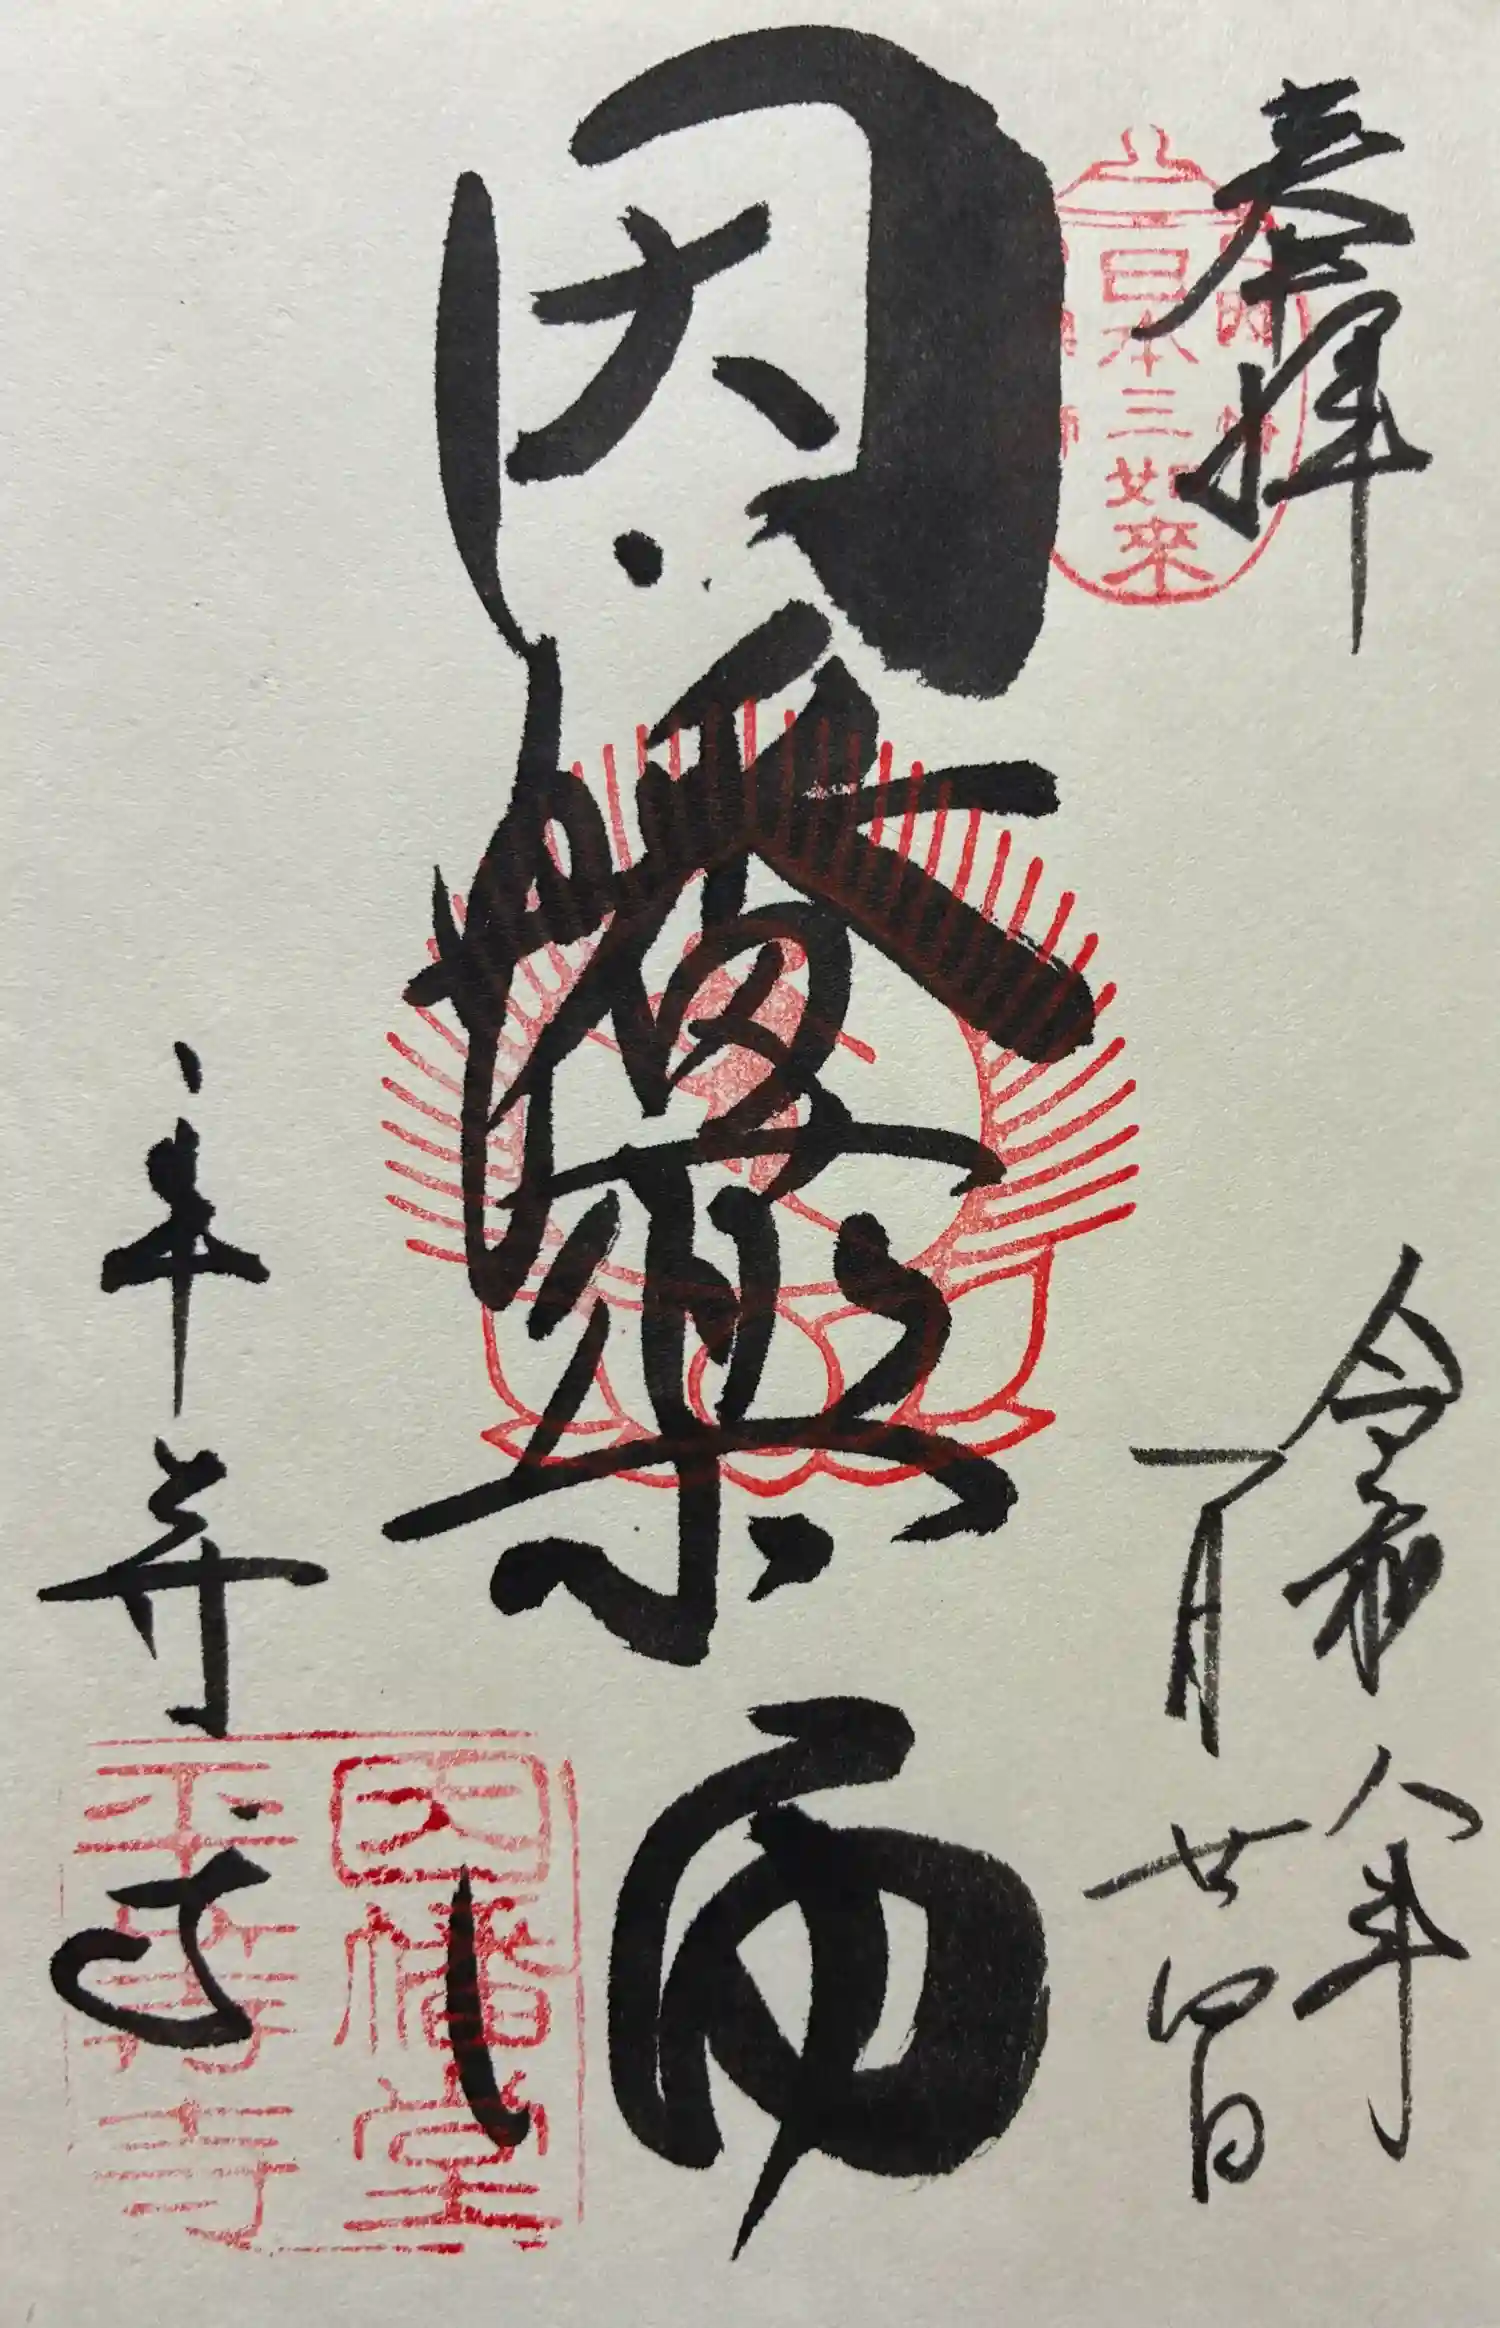 奉拝
日本三如來
令和八年
一月廿四日
因幡藥師
平等寺
因幡堂
平等寺